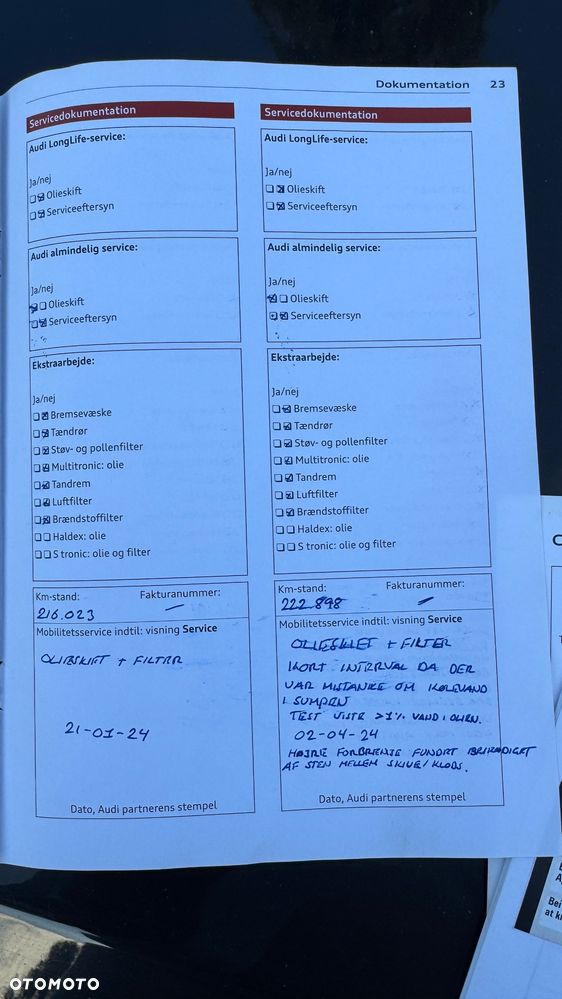 Dokumentation 23
Servicedokumentation
Audi LongLife-service:
Ja/nej
Olieskift
Serviceeftersyn
Audi almindelig service:
Ja/nej
Olieskift
Serviceeftersyn
Ekstraarbejde:
Ja/nej
Bremsevæske
Tændrør
Støv- og pollenfilter
Multitronic: olie
Tandrem
Luftfilter
Brændstoffilter
Haldex: olie
S tronic: olie og filter
Km-stand: Fakturanummer:
216.023 –
Mobilitetsservice indtil: visning Service
OLIESKIFT + FILTER
21-01-24
Dato, Audi partnerens stempel
Servicedokumentation
Audi LongLife-service:
Ja/nej
Olieskift
Serviceeftersyn
Audi almindelig service:
Ja/nej
Olieskift
Serviceeftersyn
Ekstraarbejde:
Ja/nej
Bremsevæske
Tændrør
Støv- og pollenfilter
Multitronic: olie
Tandrem
Luftfilter
Brændstoffilter
Haldex: olie
S tronic: olie og filter
Km-stand: Fakturanummer:
222.898 –
Mobilitetsservice indtil: visning Service
OLIESKIET + FILTER
KORT INTERVAL DA DER
VAR MISTANKE OM KØLEVAND
I SUMPEN
TEST VISTE >1% VAND I OLIEN.
02-04-24
HØJRE FORBREMSE FUNDET
AF STEN MELLEM SKIVE/KLODS.
Dato, Audi partnerens stempel
Bei
at k
OTOMOTO